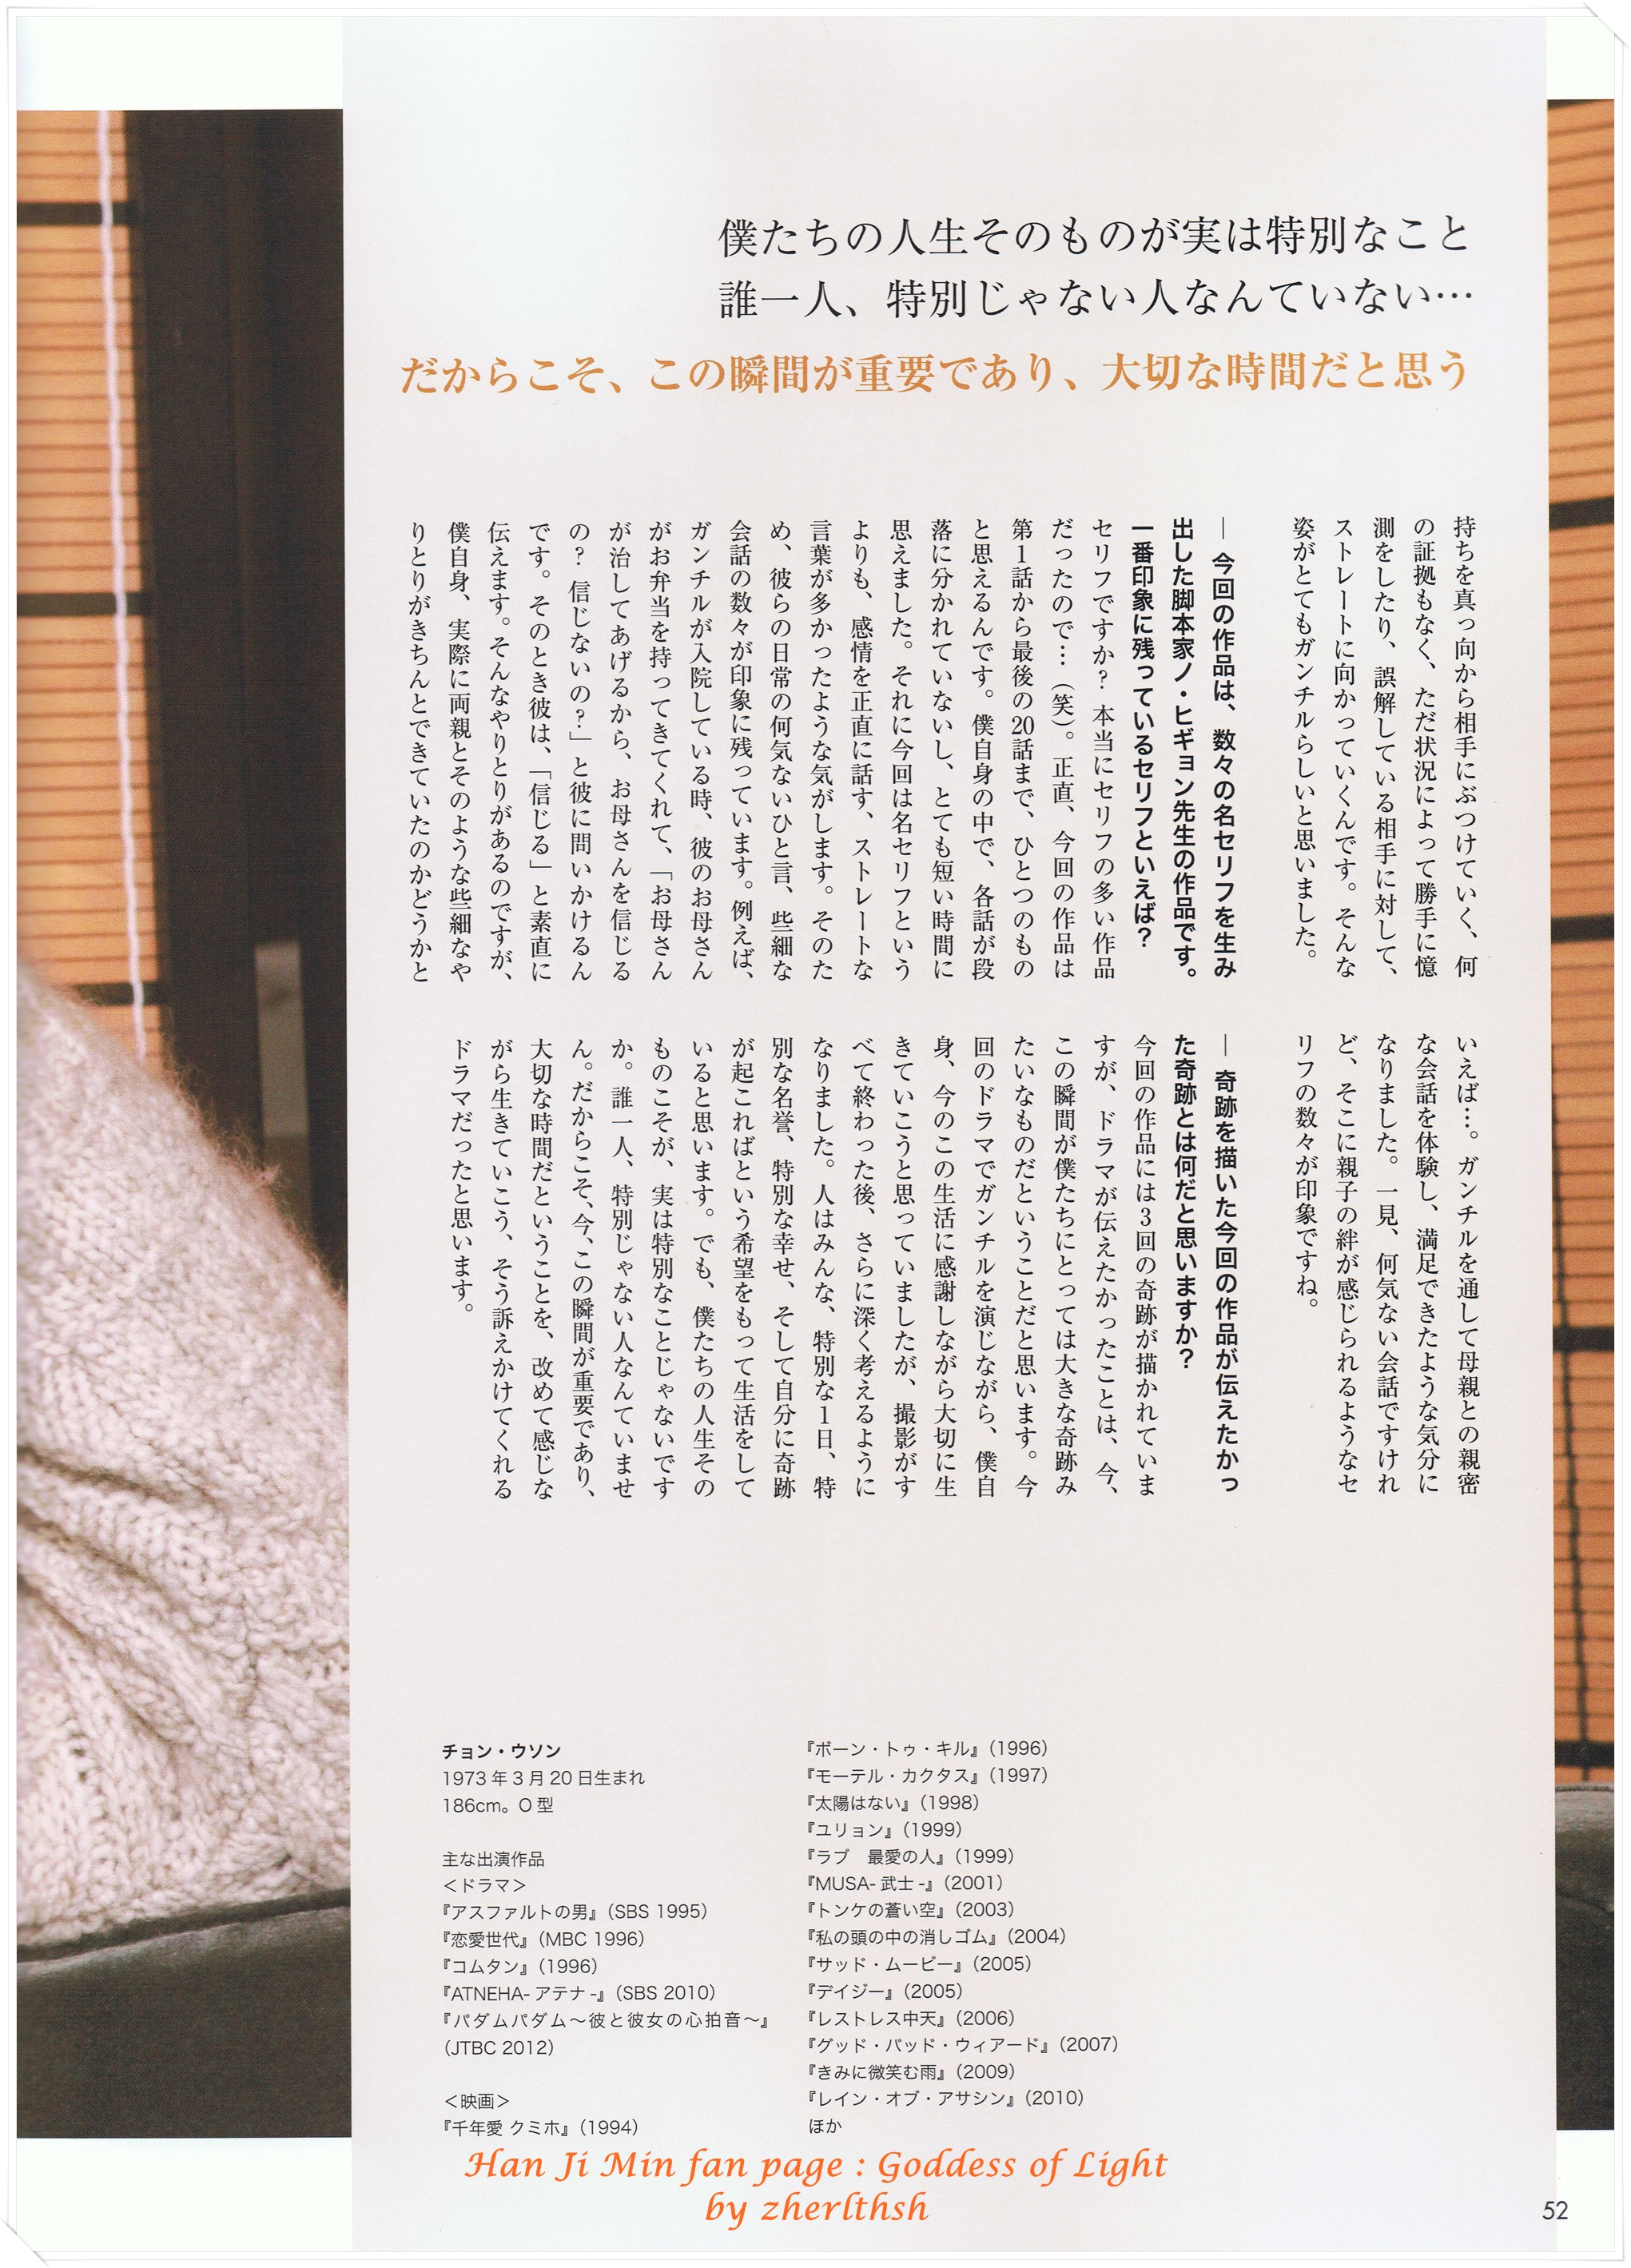 僕たちの人生そのものが実は特別なこと
誰一人、特別じゃない人なんていない…
だからこそ、この瞬間が重要であり、大切な時間だと思う
持ちを真っ向から相手にぶつけていく、何
の証拠もなく、ただ状況によって勝手に憶
測をしたり、誤解している相手に対して、
ストレートに向かっていくんです。そんな
姿がとてもガンチルらしいと思いました。
― 今回の作品は、数々の名セリフを生み
出した脚本家ノ・ヒギョン先生の作品です。
一番印象に残っているセリフといえば？
セリフですか？ 本当にセリフの多い作品
だったので…（笑）。正直、今回の作品は
第1話から最後の20話まで、ひとつのもの
と思えるんです。僕自身の中で、各話が段
落に分かれていないし、とても短い時間に
思えました。それに今回は名セリフという
よりも、感情を正直に話す、ストレートな
言葉が多かったような気がします。そのた
め、彼らの日常の何気ないひと言、些細な
会話の数々が印象に残っています。例えば、
ガンチルが入院している時、彼のお母さん
がお弁当を持ってきてくれて、「お母さん
が治してあげるから、お母さんを信じる
の？ 信じないの？」と彼に問いかけるん
です。そのとき彼は、「信じる」と素直に
伝えます。そんなやりとりがあるのですが、
僕自身、実際に両親とそのような些細なや
りとりがきちんとできていたのかどうかと
いえば…。ガンチルを通して母親との親密
な会話を体験し、満足できたような気分に
なりました。一見、何気ない会話ですけれ
ど、そこに親子の絆が感じられるようなセ
リフの数々が印象ですね。
― 奇跡を描いた今回の作品が伝えたかっ
た奇跡とは何だと思いますか？
今回の作品には3回の奇跡が描かれていま
すが、ドラマが伝えたかったことは、今、
この瞬間が僕たちにとっては大きな奇跡み
たいなものだということだと思います。今
回のドラマでガンチルを演じながら、僕自
身、今のこの生活に感謝しながら大切に生
きていこうと思っていましたが、撮影がす
べて終わった後、さらに深く考えるように
なりました。人はみんな、特別な1日、特
別な名誉、特別な幸せ、そして自分に奇跡
が起こればという希望をもって生活をして
いると思います。でも、僕たちの人生その
ものこそが、実は特別なことじゃないです
か。誰一人、特別じゃない人なんていませ
ん。だからこそ、今、この瞬間が重要であり、
大切な時間だということを、改めて感じな
がら生きていこう、そう訴えかけてくれる
ドラマだったと思います。
チョン・ウソン
1973年3月20日生まれ
186cm。O型
主な出演作品
＜ドラマ＞
『アスファルトの男』（SBS 1995）
『恋愛世代』（MBC 1996）
『コムタン』（1996）
『ATNEHA-アテナ-』（SBS 2010）
『パダムパダム～彼と彼女の心拍音～』
（JTBC 2012）
＜映画＞
『千年愛 クミホ』（1994）
『ボーン・トゥ・キル』（1996）
『モーテル・カクタス』（1997）
『太陽はない』（1998）
『ユリョン』（1999）
『ラブ　最愛の人』（1999）
『MUSA-武士-』（2001）
『トンケの蒼い空』（2003）
『私の頭の中の消しゴム』（2004）
『サッド・ムービー』（2005）
『デイジー』（2005）
『レストレス中天』（2006）
『グッド・バッド・ウィアード』（2007）
『きみに微笑む雨』（2009）
『レイン・オブ・アサシン』（2010）
ほか
Han Ji Min fan page : Goddess of Light
by zherlthsh
52